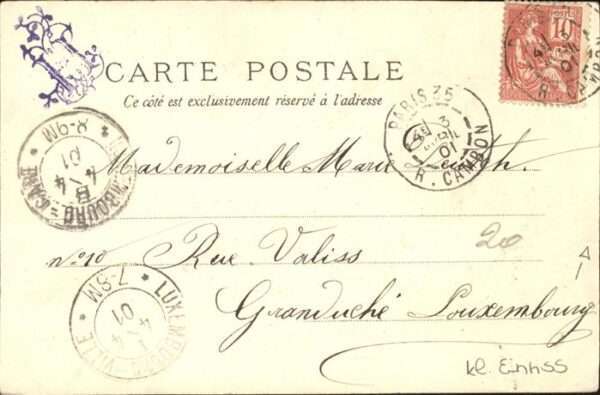 CARTE POSTALE
Ce côté est exclusivement réservé à l'adresse
10
POSTES
PARIS 35
3
AVRIL
01
R. CAMBON
LUXEMBOURG-GARE
B
4-4
01
8-9M
Mademoiselle Marie
n° 10 Rue Valiss
20
Granduché Louxembourg
LUXEMBOURG VILLE
1
4-4
01
7-8M
kl. Einriss